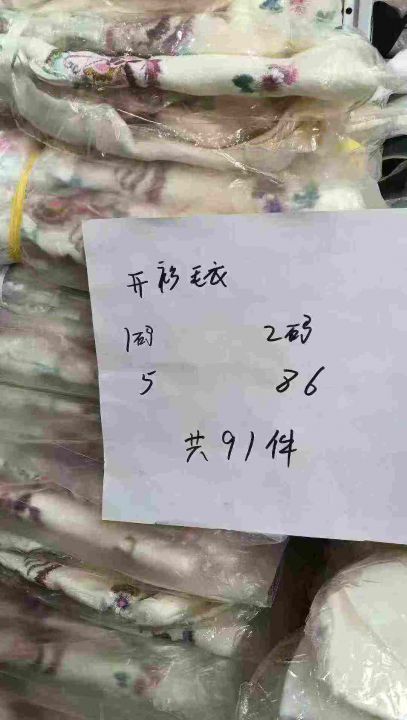 开衫毛衣
1码 2码
5 86
共91件